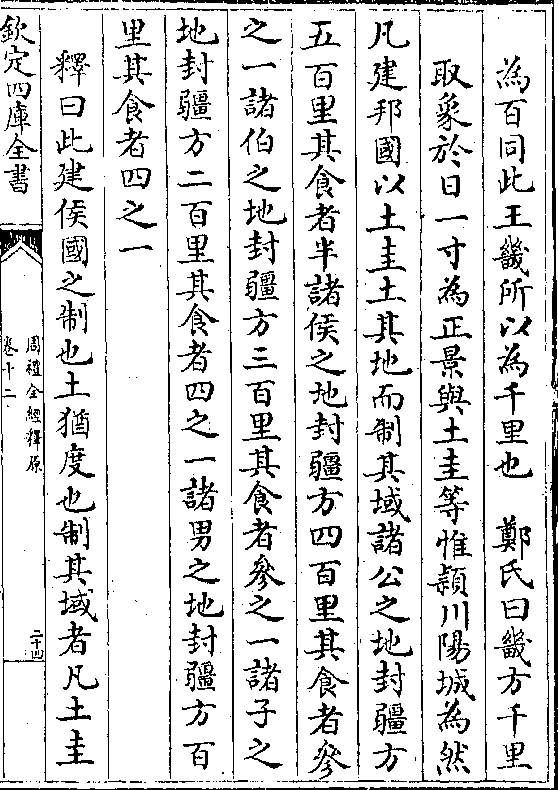 為百同此王畿所以為千里也　鄭氏曰畿方千里
取象於日一寸為正景與土圭等惟頴川陽城為然
凡建邦國以土圭土其地而制其域諸公之地封疆方
五百里其食者半諸侯之地封疆方四百里其食者參
之一諸伯之地封疆方三百里其食者參之一諸子之
地封疆方二百里其食者四之一諸男之地封疆方百
里其食者四之一
釋曰此建侯國之制也土猶度也制其域者凡土圭
欽定四庫全書
周禮全經釋原
卷十二
二十四